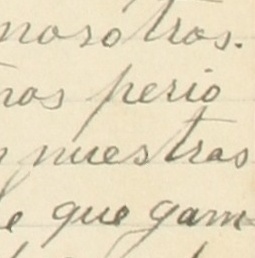 nosotros.
nos perio
nuestras
que gam-